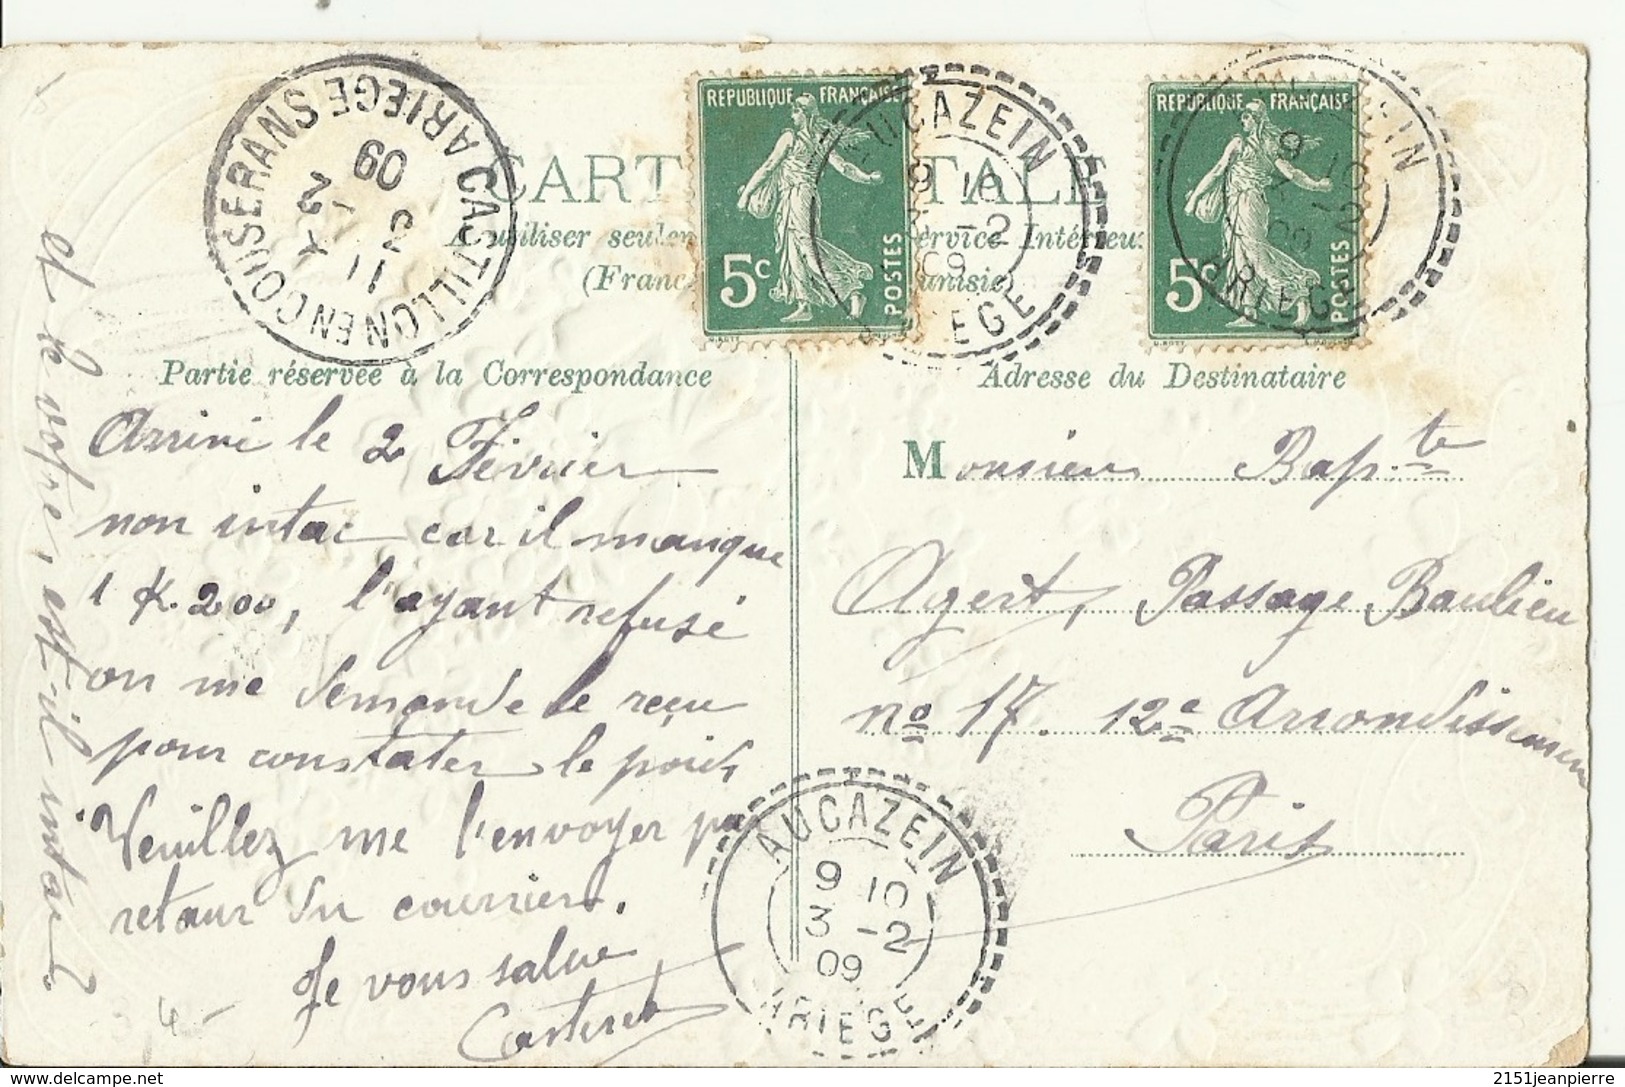 CASTILLON EN COUSERANS ARIEGE
11 3
-2
09
REPUBLIQUE FRANÇAISE
5c POSTES
REPUBLIQUE FRANÇAISE
5c POSTES
AUCAZEIN
9 10
-2
09
ARIEGE
9 10
-2
09
ARIEGE
CARTE POSTALE
Partie réservée à la Correspondance
Adresse du Destinataire
Arrivé le 2 Février
non intac car il manque
1 K. 200, l'ayant refusé
on me demande le reçu
pour constater le poids
Veuillez me l'envoyer par
retour du courrier.
Je vous salue
Casteret
et le votre, est-il intac?
Monsieur Bap.te
Agert, Passage Baulieu
no 17. 12e Arrondissement
Paris
AUCAZEIN
9 10
3 -2
09
ARIEGE
4-
2151jeanpierre